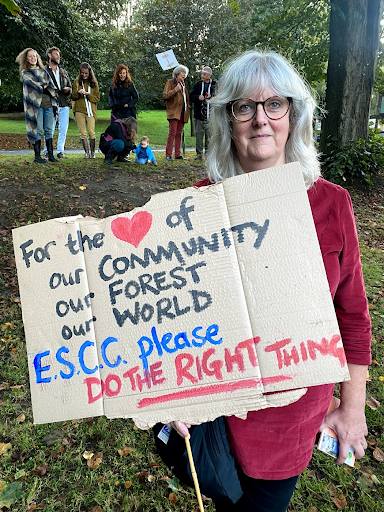 For the ❤ of
our COMMUNITY
our FOREST
our WORLD
E.S.C.C. please
DO THE RIGHT THING